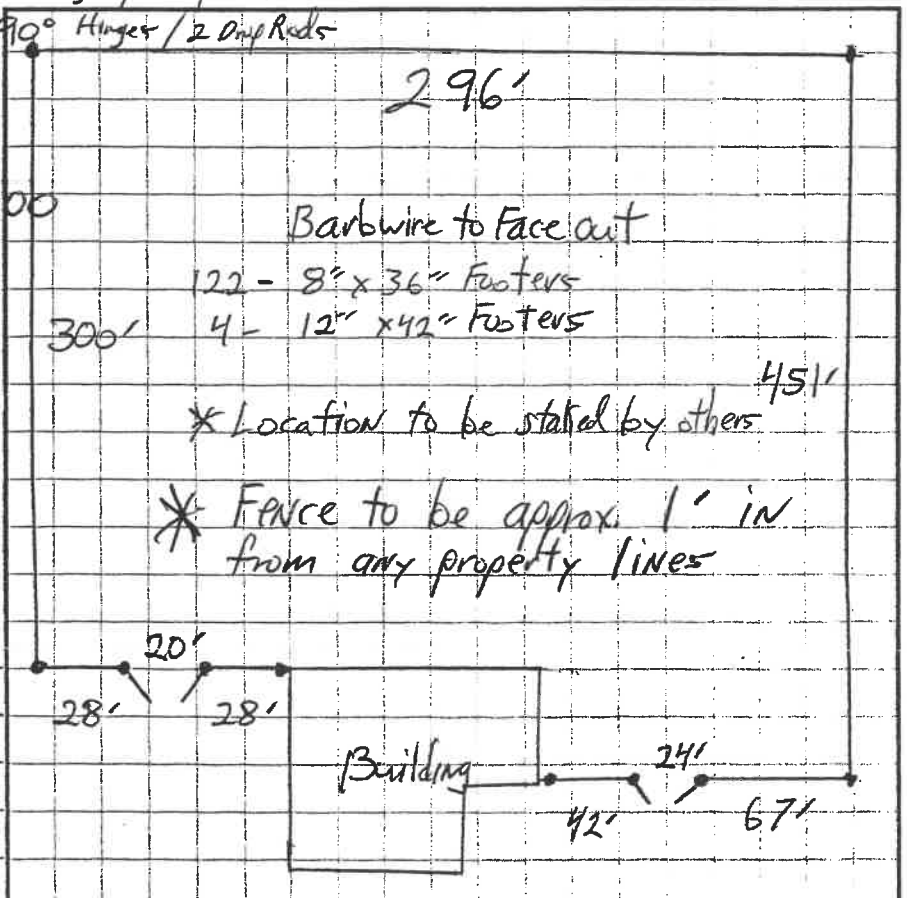 90° Hinges / 2 Drop Rods
296'
00
Barbwire to Face out
122 - 8" x 36" Footers
300'
4 - 12" x 42" Footers
451'
* Location to be staked by others
* Fence to be approx. 1' in
from any property lines
20'
28'
28'
Building
24'
42'
67'